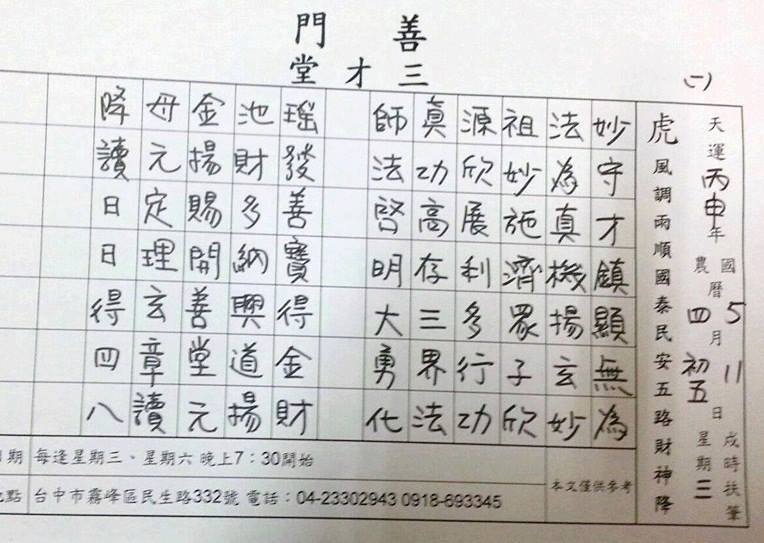 善門
三才堂
(一)
天運丙申年 國曆5月11日 農曆四月初五日 星期三 戌時扶筆
虎風調雨順國泰民安五路財神降
妙守才鎮顯無為
法為真機揚玄妙
祖妙施濟眾子欣
源欣展利多行功
真功高存三界法
師法啓明大勇化
瑤發善寶得金財
池財多納興道揚
金揚賜開善堂元
母元定理玄章讀
降讀日日得四八
期 每逢星期三、星期六 晚上7：30開始
點 台中市霧峰區民生路332號 電話：04-23302943 0918-693345
本文僅供參考